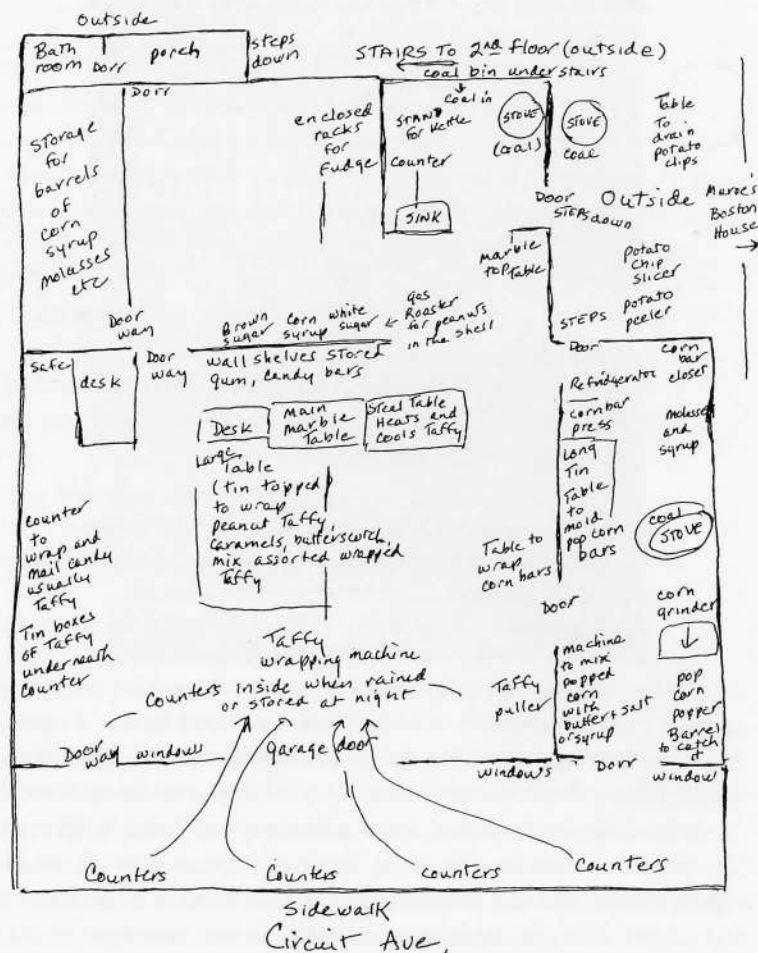 Outside
Bath
room
Dorr
porch
steps
down
STAIRS TO 2nd floor (outside)
coal bin under stairs
Dorr
Storage
for
barrels
of
corn
syrup
molasses
etc
enclosed
racks
for
fudge
coal in
STAND
for Kettle
counter
SINK
STOVE
(coal)
STOVE
coal
Table
To
drain
potato
clips
Door
STEPS down
Outside
Maroe's
Boston
House
marble
top Table
potato
chip
slicer
potato
peeler
STEPS
Door
Door
way
Brown
sugar
corn
syrup
white
sugar
gas
Roaster
for peanuts
in the shell
safe
desk
Door
way
wall shelves stored
gum, candy bars
Desk
Main
marble
Table
Steel Table
Heats and
Cools Taffy
Large
Table
(tin topped)
to wrap
peanut Taffy,
caramels, butterswich,
mix assorted wrapped
Taffy
Refridgerator
corn bar
press
Long
Tin
Table
to
mold
pop corn
bars
corn
bar
closet
molasses
and
syrup
coal
STOVE
Table to
wrap
corn bars
Door
corn
grinder
counter
to
wrap and
mail candy
usually
Taffy
Tin boxes
of Taffy
underneath
counter
Taffy
wrapping machine
Counters inside when rained
or stored at night
Taffy
puller
machine
to mix
popped
corn
with
butter & salt
or syrup
pop
corn
popper
Barrel
to catch
it
Door
way
windows
garage door
windows
Dorr
window
Counters
Counters
counters
Counters
Sidewalk
Circuit Ave,